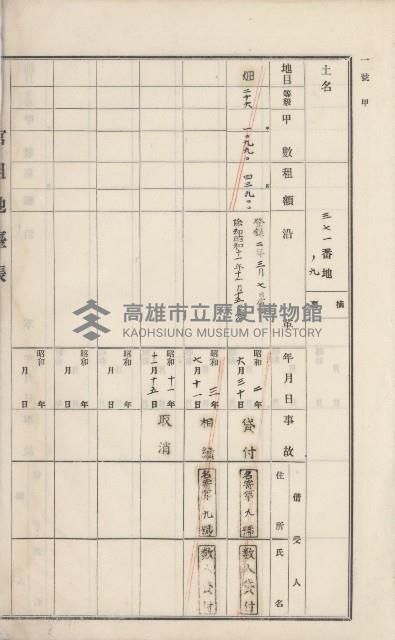 一號甲
土名
三七一番地ノ九
摘要
地目
等級
甲數
租額
沿革
年月日
事故
借受人
住所
氏名
畑
二十六
一、〇九九〇
四三九〇
登録二年三月七日
除却昭和十一年十一月十五日
昭和二年六月三十日
貸付
名寄第九號
数人貸付
昭和三年七月十一日
相續
名寄第九號
数人貸付
昭和十一年十一月十五日
取消
昭和年月日
昭和年月日
昭和年月日
官租地臺帳
高雄市立歷史博物館
KAOHSIUNG MUSEUM OF HISTORY